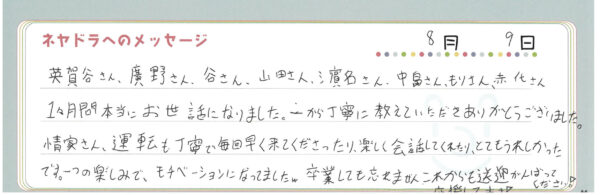 ネヤドラへのメッセージ
8月 9日
英賀谷さん、廣野さん、谷さん、山田さん、濱名さん、中畠さん、もりさん、赤化さん
1ヶ月間本当にお世話になりました。一から丁寧に教えていただきありがとうございました。
情家さん、運転も丁寧で毎回早く来てくださったり、楽しく会話してくれたり、とてもうれしかった
です。一つの楽しみで、モチベーションになってました。卒業しても忘れませんこれからも送迎がんばってください!!
応援してます